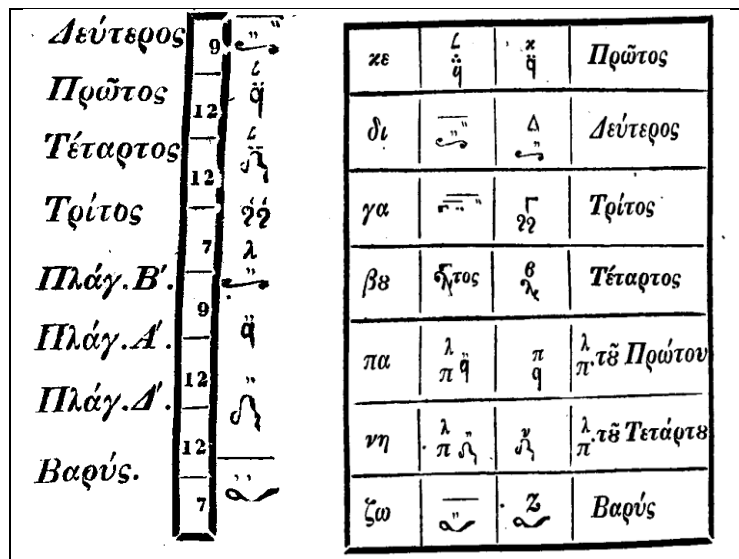 Δεύτερος
9
Πρῶτος
12
Τέταρτος
12
Τρίτος
7
Πλάγ. Β'.
9
Πλάγ. Α'.
12
Πλάγ. Δ'.
12
Βαρύς.
7
κε Πρῶτος
δι Δ Δεύτερος
γα Γ Τρίτος
βȣ τος β Τέταρτος
πα λ π π λ π. τȣ͂ Πρώτου
νη λ π ν λ π. τȣ͂ Τετάρτȣ
ζω Ζ Βαρύς